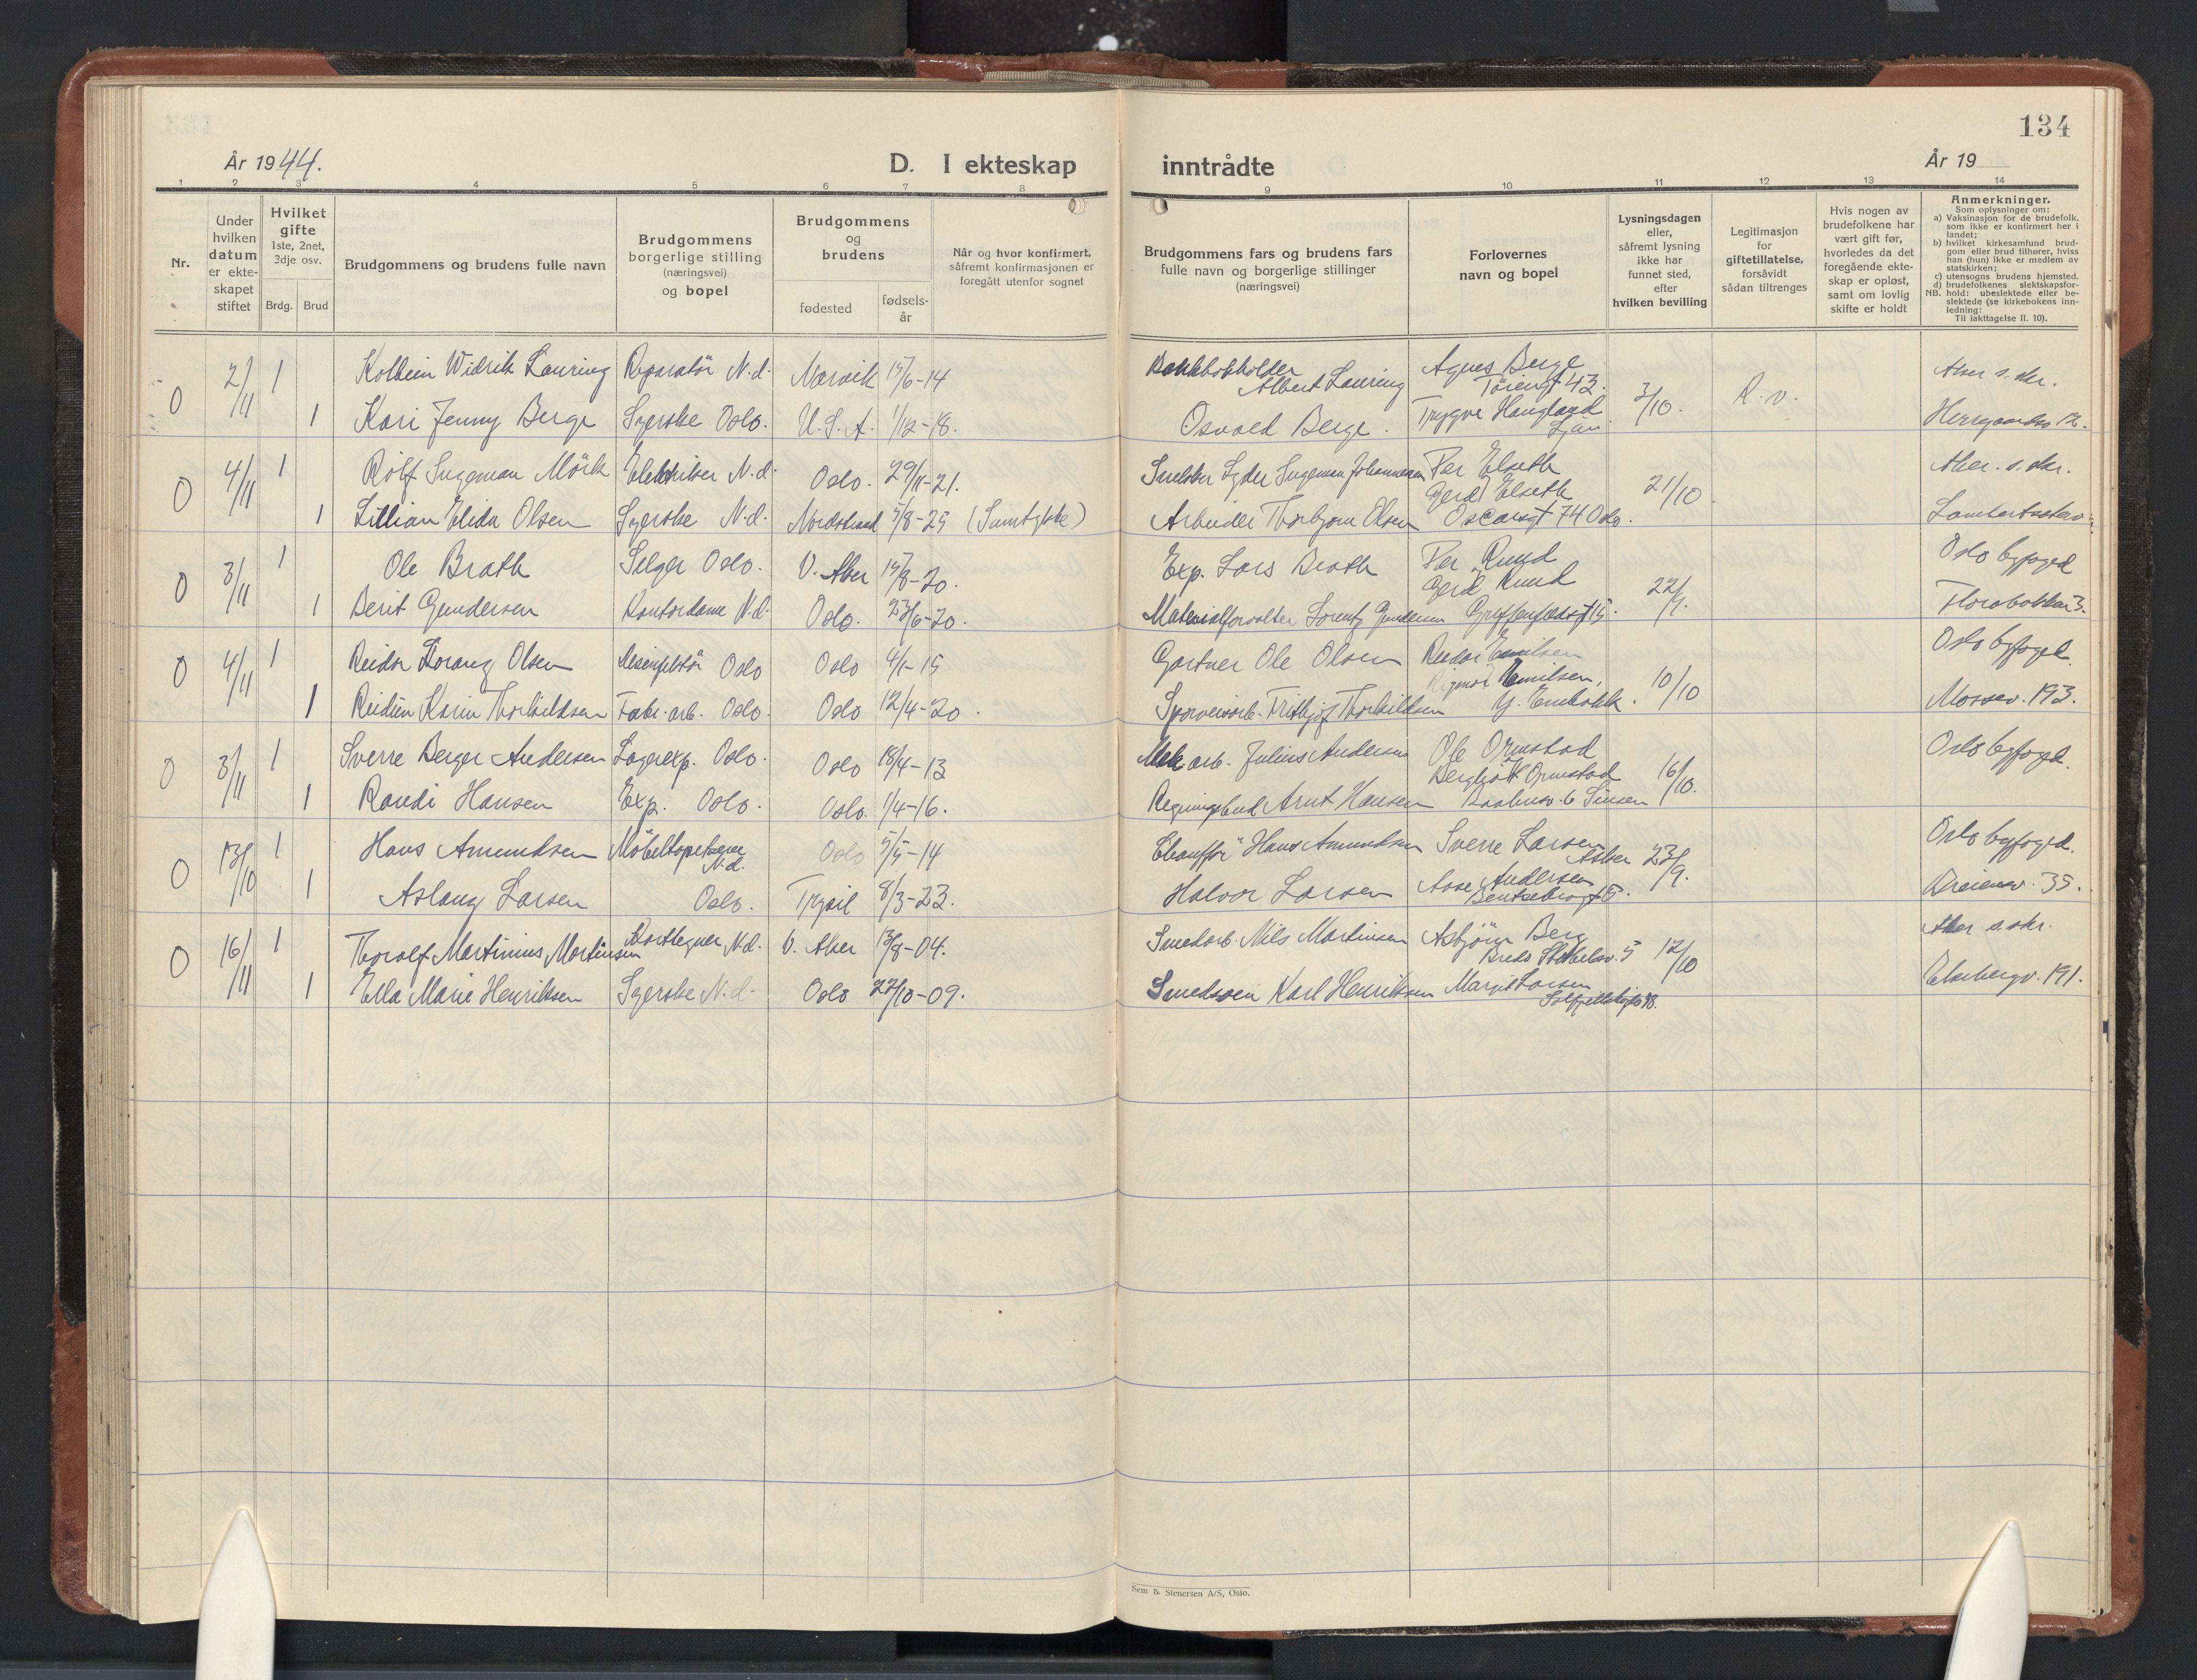 134
År 1944.
D. I ekteskap inntrådte
År 19
1 2 3 4 5 6 7 8 9 10 11 12 13 14
Nr.
Under hvilken datum er ekte-skapet stiftet
Hvilket gifte 1ste, 2net, 3dje osv.
Brdg. Brud
Brudgommens og brudens fulle navn
Brudgommens borgerlige stilling (næringsvei) og bopel
Brudgommens og brudens
fødested
fødsels-år
Når og hvor konfirmert, såfremt konfirmasjonen er foregått utenfor sognet
Brudgommens fars og brudens fars fulle navn og borgerlige stillinger (næringsvei)
Forlovernes navn og bopel
Lysningsdagen eller, såfremt lysning ikke har funnet sted, efter hvilken bevilling
Legitimasjon for giftetillatelse, forsåvidt sådan tiltrenges
Hvis nogen av brudefolkene har vært gift før, hvorledes da det foregående ekte-skap er opløst, samt om lovlig skifte er holdt
Anmerkninger.
Som oplysninger om:
a) Vaksinasjon for de brudefolk, som ikke er konfirmert her i landet;
b) hvilket kirkesamfund brud-gom eller brud tilhører, hviss han (hun) ikke er medlem av statskirken;
c) utensogns brudens hjemsted.
d) brudefolkenes slektskapsfor-hold: ubeslektede eller be-slektede (se kirkebokens inn-ledning:
NB. Til iakttagelse II. 10).
0 2/11 1 Kolbein Widrik Lauring Reparatör N.d. Narvik 15/6-14 Bokholder Albert Lauring Agnes Berge 43. Aker s.skr.
1 Kari Jenny Berge Syerske Oslo. U.S.A. 1/12-18. Osvald Berge. Trygve Haugland Ljan 3/10. R.v. Herregaardsv 12.
0 4/11 1 Rolf Ingeman Mörk Elektriker N.d. Oslo. 29/11-21. Snekker Ingeman Johannessen Per Elseth Aker. s.skr.
1 Lillian Elida Olsen Syerske N.d. Nordstrand 5/8-25 Arbeider Thorbjørn Olsen Gerd Elseth Oscarsgt 74 Oslo. 21/10.
0 3/11 1 Ole Brath Selger Oslo. V. Aker 15/8-20. Exp. Lars Brath Per Ruud Oslo byfoged
1 Berit Gundersen Kontordame N.d. Oslo. 23/6-20. Materialforvalter Lorentz Gundersen Gerd Ruud Griffenfeldsgt 15. 22/9.
0 4/11 1 Reidar Olsen Oslo Oslo 4/1-15 Gartner Ole Olsen Reidar Emilsen Oslo byfoged.
1 Reidun Karin Thorkildsen Fabr.arb. Oslo. Oslo 12/4-20. Sporveisarb. Fritjof Thorkildsen Rigmor Emilsen. 10/10 Mossev. 193.
0 3/11 1 Sverre Berger Andersen Lagerexp. Oslo. Oslo 18/4-13 Mek arb. Julius Andersen Ole Ormstad Oslo byfoged.
1 Randi Hansen Exp. Oslo. Oslo. 1/4-16. Regningsbud Arnt Hansen Bergljot Ormstad 6 Sinsen 16/10.
0 13/10 1 Hans Amundsen Möbeltapetserer N.d. Oslo 5/5-14 Chauffør Hans Amundsen Sverre Larsen Asker Oslo byfoged.
1 Aslaug Larsen Oslo. Trysil 8/3-23. Halvor Larsen Aase Andersen 23/9. 35.
0 16/11 1 Thorolf Martinius Martinsen Karttegner N.d. V. Aker 13/8-04. Smedarb. Nils Martinsen Asbjörn Berg Bredo Stabelsv. 5 Aker s.skr.
1 Ella Marie Henriksen Syerske N.d. Oslo 27/10-09. Smedsven Karl Henriksen Margit Larsen 12/10 Ekebergv. 191.
Sem & Stenersen A/S, Oslo.